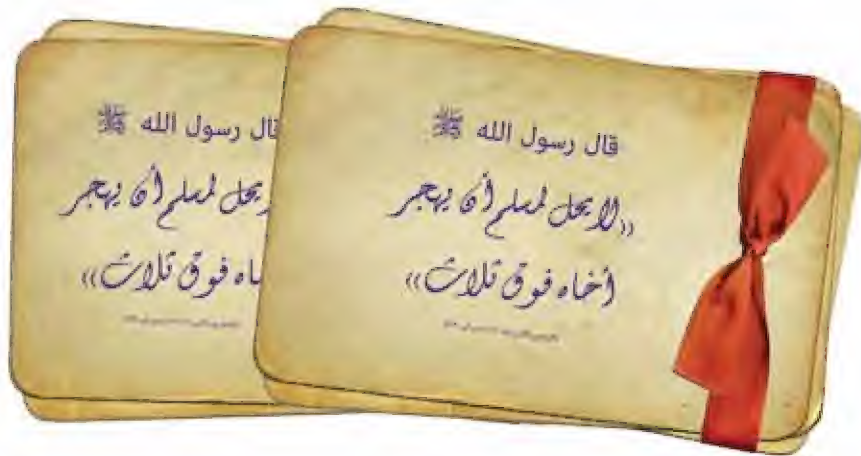 قال رسول الله ﷺ
((لا يحل لمسلم أن يهجر
أخاه فوق ثلاث))
قال رسول الله ﷺ
يحل لمسلم أن يهجر
فوق ثلاث))